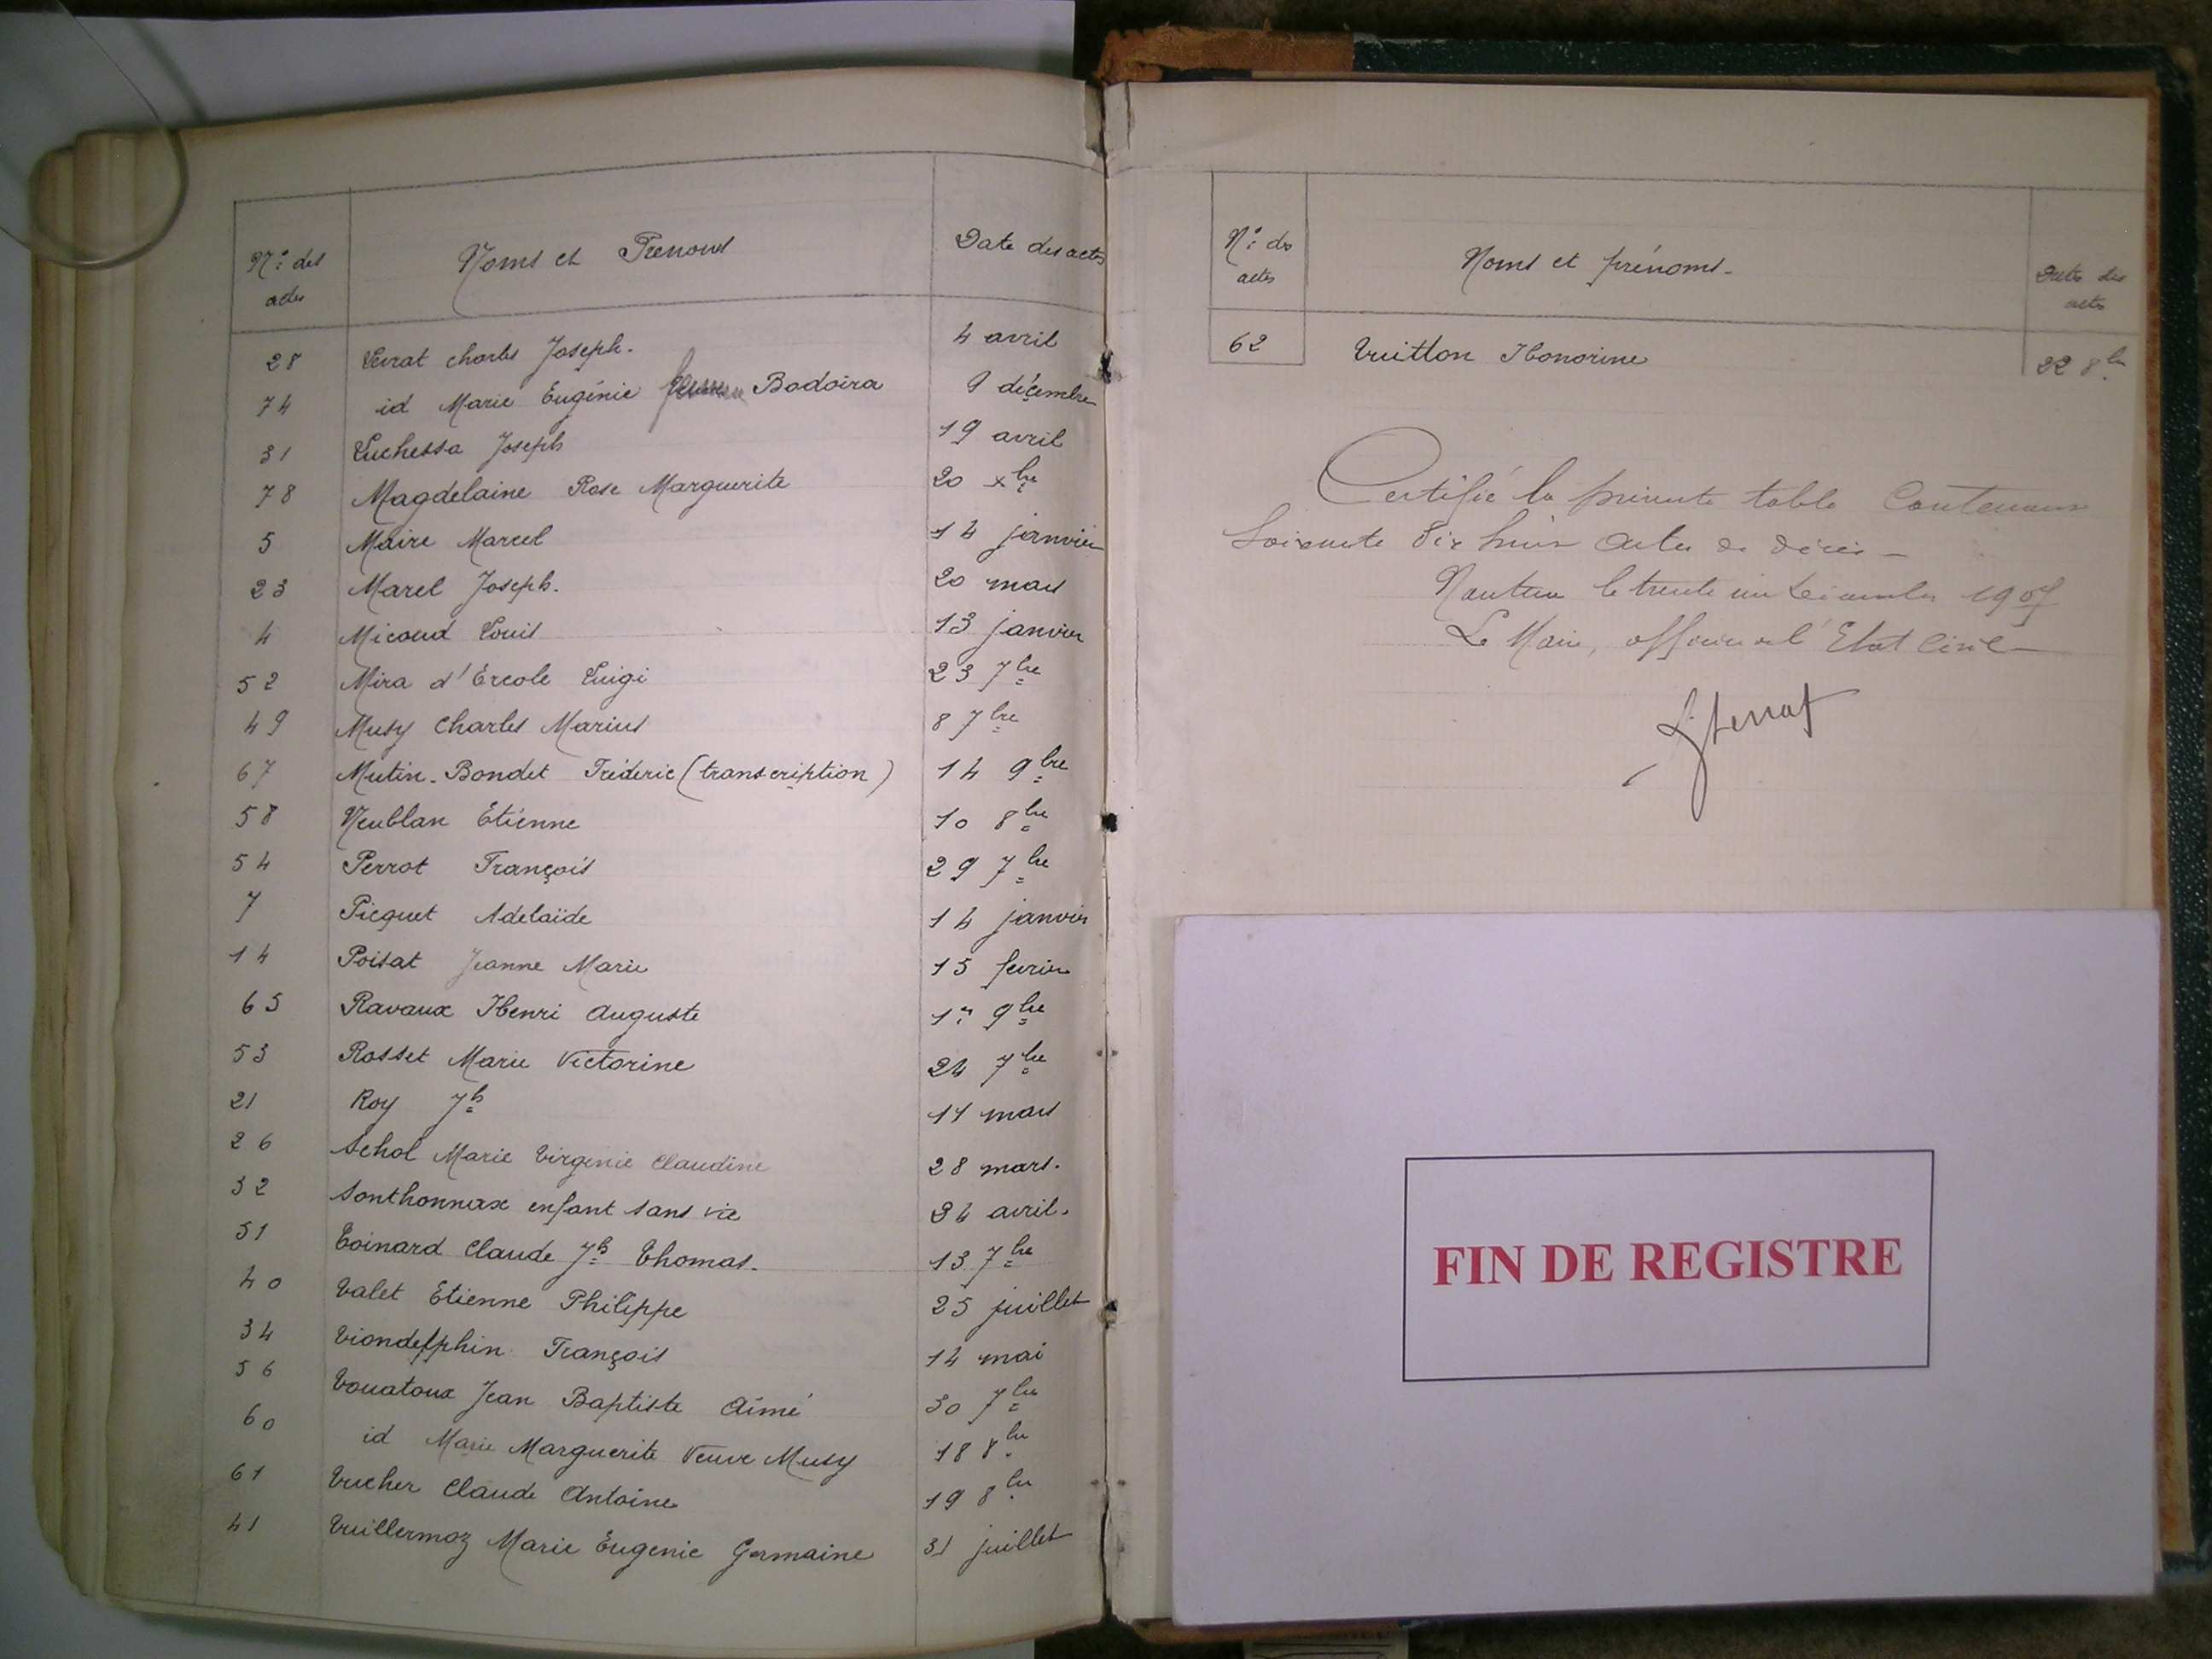 N.º des
actes
Noms et Prénoms
Date des actes
28 Lenrat Charles Joseph. 4 avril
74 id Marie Eugénie femme Badoira 9 décembre
31 Luchessa Joseph 19 avril
78 Magdelaine Rose Marguerite 20 xbre
5 Maire Marcel 14 janvier
23 Marel Joseph. 20 mars
4 Micoud Louis 13 janvier
52 Mira d'Ercole Luigi 23 7bre
49 Musy Charles Marius 8 7bre
67 Mutin-Bondet Fréderic (transcription) 14 9bre
58 Neublan Etienne 10 8bre
54 Perrot François 29 7bre
7 Picquet Adelaïde 14 janvier
14 Poisat Jeanne Marie 15 fevrier
65 Ravaux Henri Auguste 1er 9bre
53 Rosset Marie Victorine 24 7bre
21 Roy Jh 11 mars
26 Schol Marie Virginie Claudine 28 mars.
32 Sonthonnax enfant sans vie 24 avril.
51 Toinard Claude Jh Thomas. 13 7bre
40 Valet Etienne Philippe 25 juillet
34 Viondelphin François 14 mai
56 Vouatoux Jean Baptiste Aimé 30 7bre
60 id Marie Marguerite Veuve Musy 18 8bre
61 Vucher Claude Antoine 19 8bre
41 Vuillermoz Marie Eugenie Germaine 31 juillet
N.º des
actes
Noms et prénoms.
Dates des
actes
62 Vuitton Honorine 22 8bre
Certifié la présente table Contenant
Soixante dix huit actes de décès
Nantua le trente un Décembre 1907
Le Maire, officier de l'Etat Civil
FIN DE REGISTRE